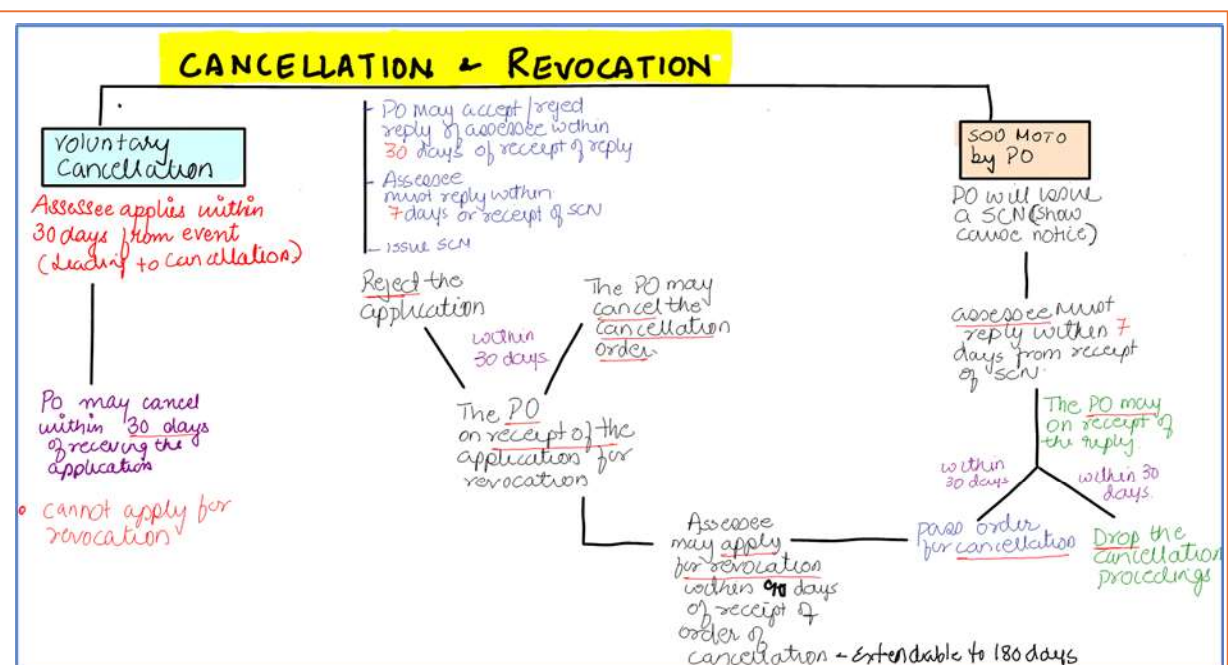 CANCELLATION & REVOCATION
Voluntary
Cancellation
Assessee applies within
30 days from event
(Leading to cancellation)
PO may cancel
within 30 days
of receiving the
application
• cannot apply for
revocation
- PO may accept/reject
reply of assessee within
30 days of receipt of reply
- Assessee
must reply within
7 days or receipt of SCN
- issue SCN
Reject the
application
The PO may
cancel the
cancellation
order.
within
30 days
The PO
on receipt of the
application for
revocation
Assessee
may apply
for revocation
within 90 days
of receipt of
order of
cancellation - extendable to 180 days
SOO MOTO
by PO
PO will issue
a SCN (show
cause notice)
assessee must
reply within 7
days from receipt
of SCN.
The PO may
on receipt of
the reply.
within
30 days
within 30
days.
pass order
for cancellation
Drop the
cancellation
proceedings